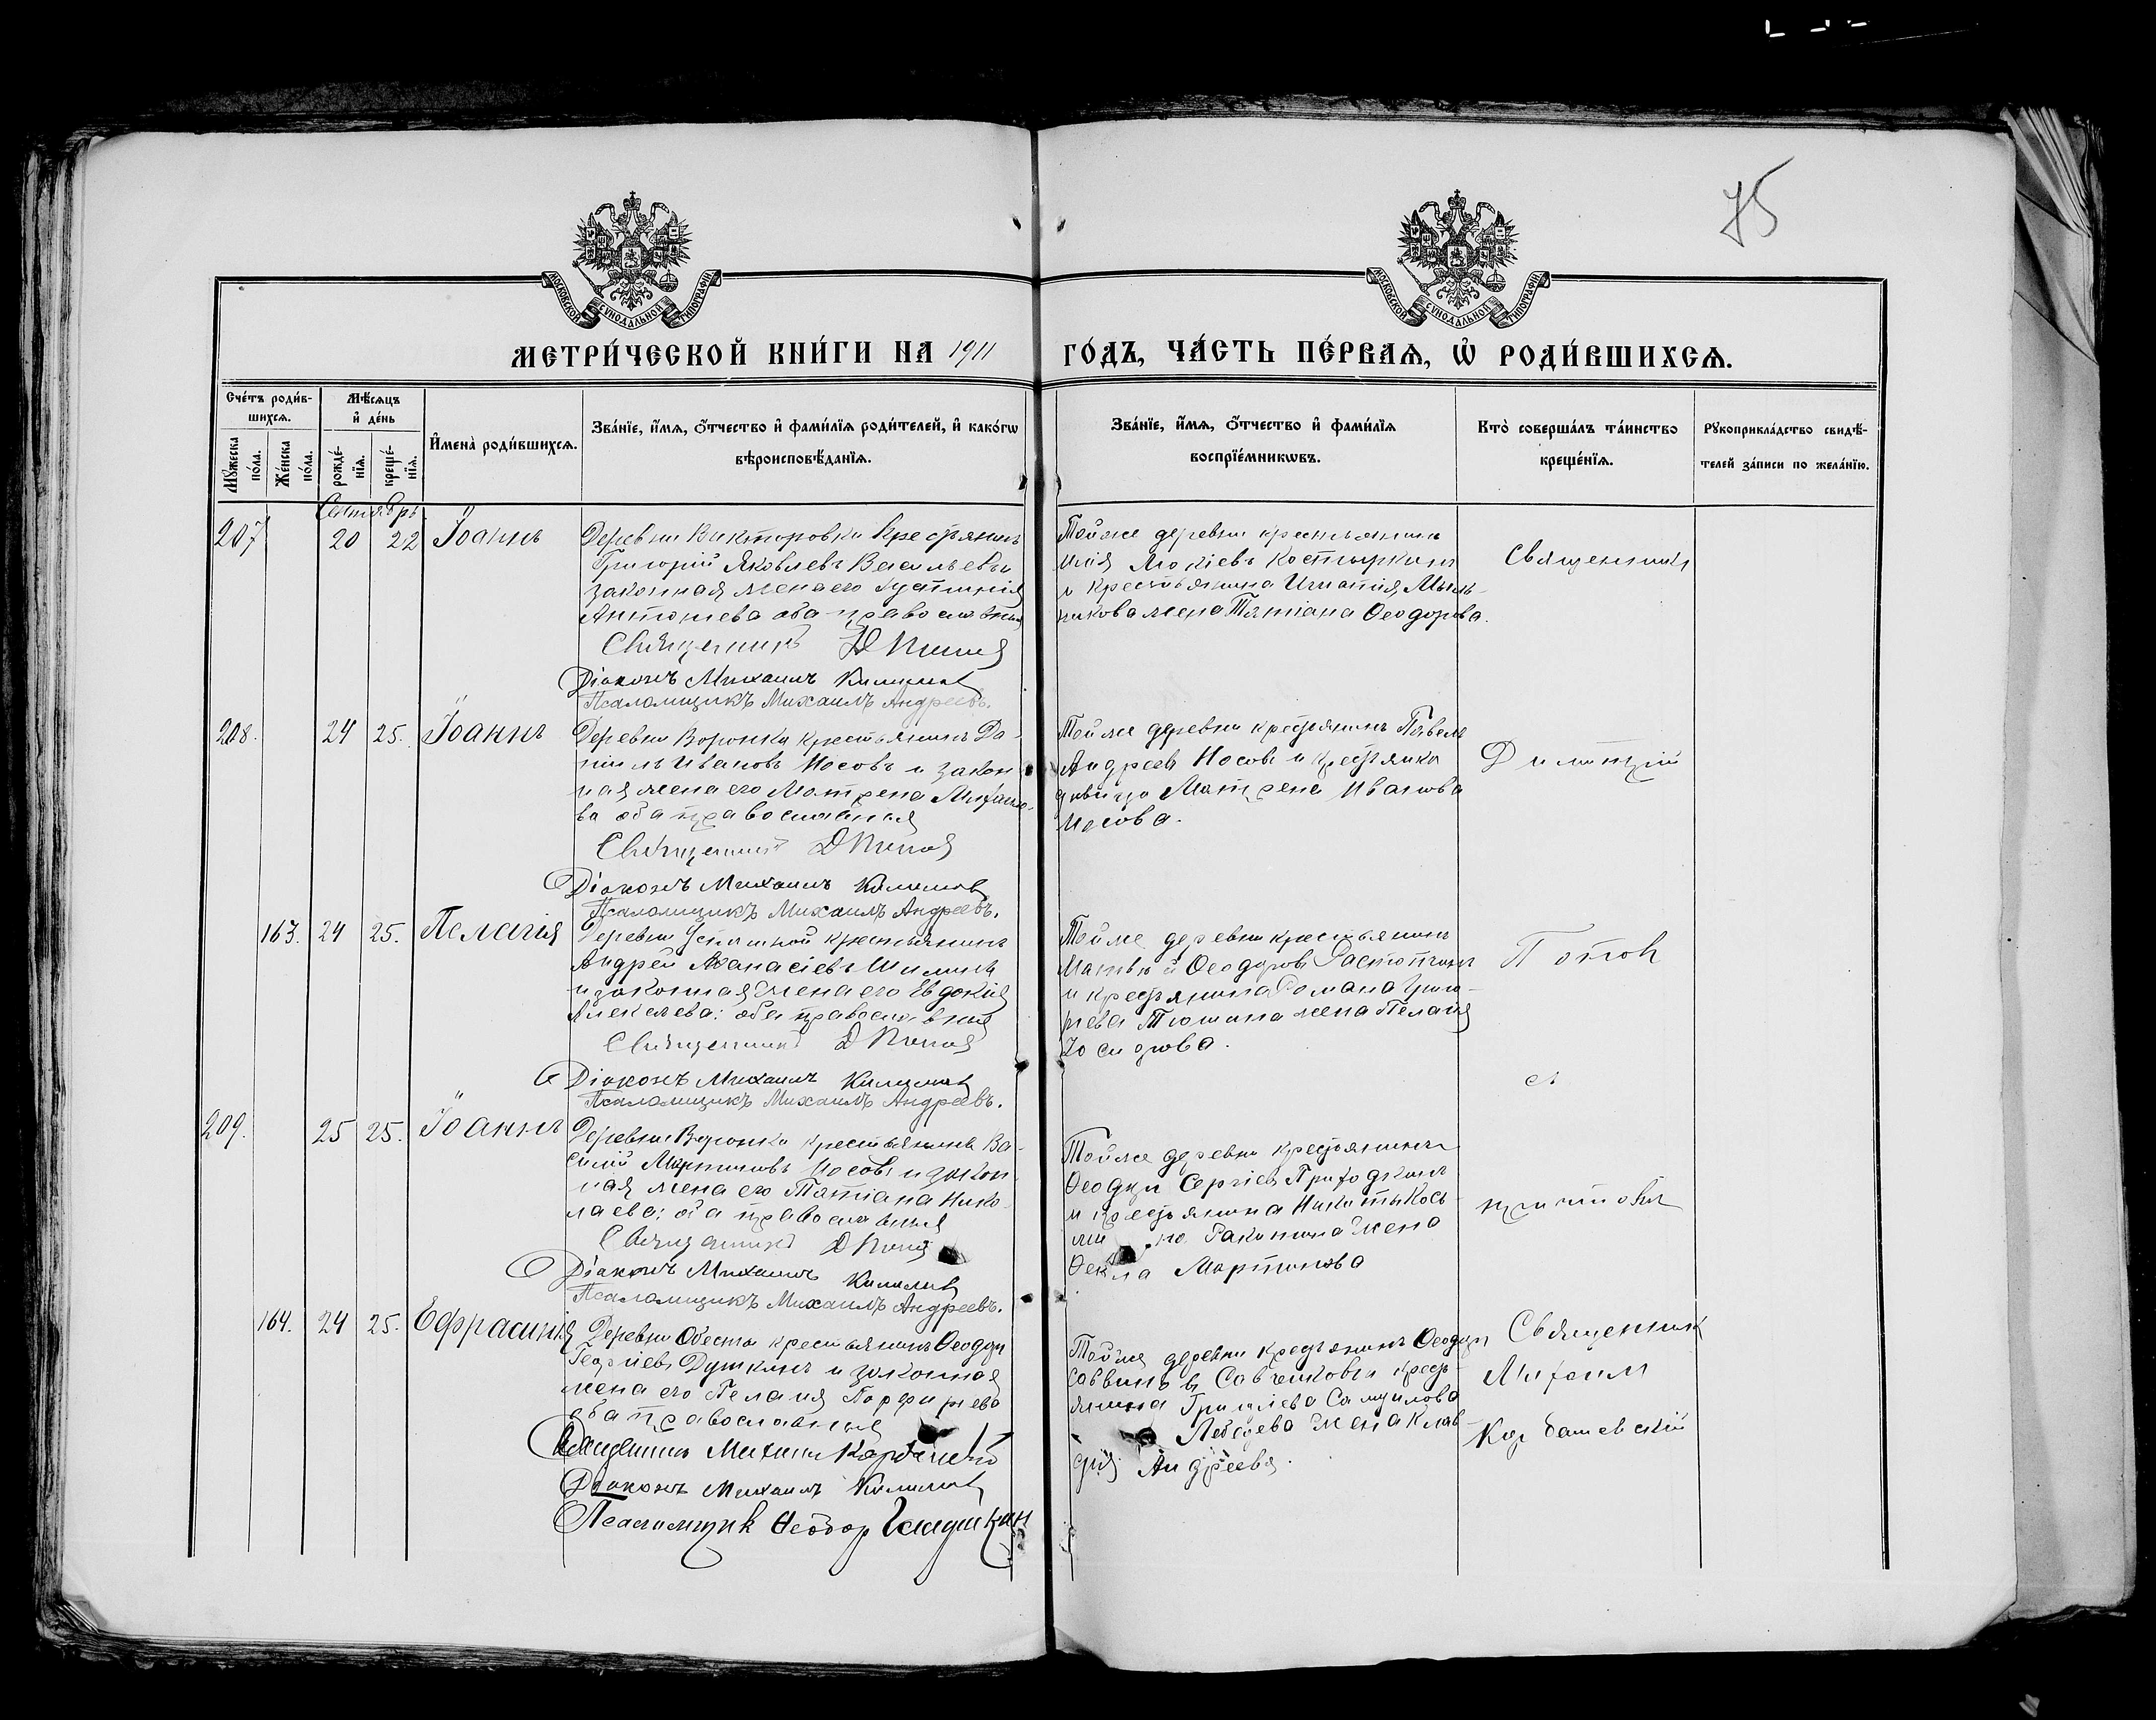 75
МОСКОВСКОЙ СѴНОДАЛЬНОЙ ТИПОГРАФІИ
МОСКОВСКОЙ СѴНОДАЛЬНОЙ ТИПОГРАФІИ
МЕТРИ́ЧЕСКОЙ КНИ́ГИ НА 1911 ГО́ДЪ, ЧА́СТЬ ПЕ́РВАѦ, Ѡ҆ РОДИ́ВШИХСѦ.
Сче́тъ роди́в-
шихсѧ.
Мꙋ́жеска
по́ла.
Же́нска
по́ла.
Мѣ́сѧцъ
и҆ де́нь
рожде́-
нїѧ.
креще́-
нїѧ.
И҆мена̀ роди́вшихсѧ.
Зва́нїе, и҆́мѧ, ѻ҆́тчество и҆ фами́лїѧ роди́телей, и҆ како́гѡ
вѣроисповѣ́данїѧ.
Зва́нїе, и҆́мѧ, ѻ҆́тчество и҆ фами́лїѧ
воспрїе́мникѡвъ.
Кто̀ соверша́лъ та́инство
креще́нїѧ.
Рꙋкоприкла́дство свидѣ́-
телей за́писи по жела́нїю.
Сентябрь
207 20 22 Іоаннъ
Деревни Викторовки Крестьянинъ
Григорій Яковлевъ Васильевъ и
законная жена его Іустинія
Антонiева оба православные
Священникъ Д Попов
Діаконъ Михаилъ
Псаломщикъ Михаилъ Андреевъ.
Тойже деревни крестьянинъ
Илія Мокіевъ Костыркинъ
и крестьянина Игнатія Мыль-
никова жена Татіана Ѳеодорова.
Священник
208. 24 25. Іоаннъ
Деревни Воронки крестьянинъ Да-
ніилъ Ивановъ Носовъ и закон
ная жена его Матрена Михаило-
ва оба православныя
Священникъ Д Попов
Діаконъ Михаилъ
Псаломщикъ Михаилъ Андреевъ.
Тойже деревни крестьянинъ Павелъ
Андреевъ Носовъ и крестьянка
девица Матрена Иванова
Носова.
Димитрій
163. 24 25. Пелагія
Деревни крестьянинъ
Андрей Аѳанасіевъ Шишкин
и законная жена его Евдокія
Алексеева: оба православные
Священникъ Д Попов
Діаконъ Михаилъ
Псаломщикъ Михаилъ Андреевъ.
Тойже деревни крестьянинъ
Матвей Ѳеодоровъ Растопчинъ
и крестьянина Романа Григо-
риева Тюшина жена Пелагія
Исидорова.
Попов
съ
209. 25 25. Іоаннъ
Деревни Воронки крестьянинъ Ва-
силій Мартиновъ Носовъ и закон
ная жена его Татіана Нико-
лаева; оба православныя
Священникъ Д Попов
Діаконъ Михаилъ
Псаломщикъ Михаилъ Андреевъ.
Тойже деревни крестьянинъ
Ѳеодоръ Сергіевъ Приходкинъ
и крестьянина Никиты Кось-
Ракитина жена
Ѳекла Мартинова
причтомъ
164. 24 25. Ефрасинія
Деревни Обесты крестьянинъ Ѳеодоръ
Георгіевъ Душкинъ и законная
жена его Пелагія Порфирьева
оба православныя
Священникъ Михаилъ Корбашевскій
Діаконъ Михаилъ
Псаломщик Ѳеодор
Тойже деревни крестьянинъ Ѳеодоръ
Саввинъ Савченковъ и кресть-
янина Григорьева Самуилова
Лебедева жена Клав-
дія Андреева.
Священник
Михаил
Корбашевскій